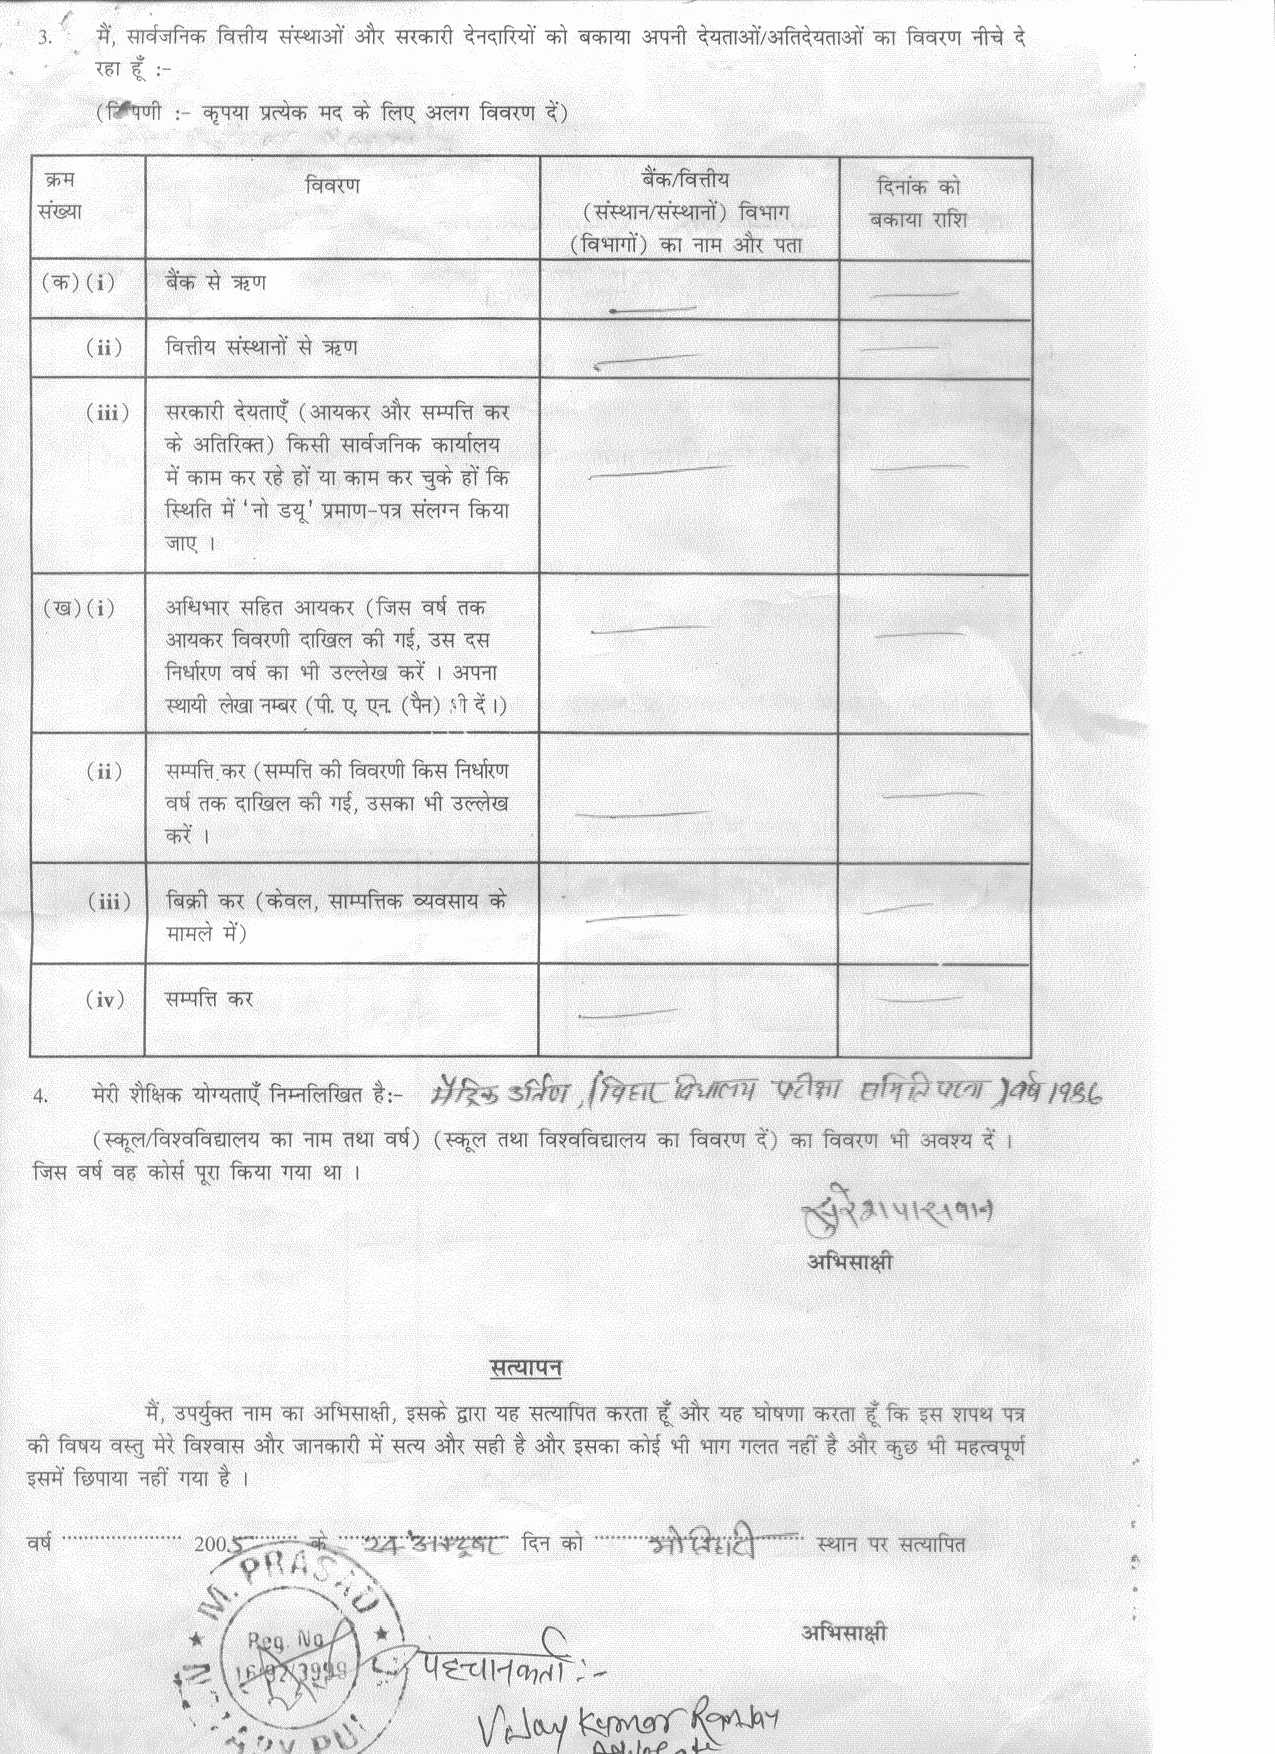 3. मैं, सार्वजनिक वित्तीय संस्थाओं और सरकारी देनदारियों को बकाया अपनी देयताओं/अतिदेयताओं का विवरण नीचे दे
रहा हूँ :-
(टिप्पणी :- कृपया प्रत्येक मद के लिए अलग विवरण दें)
क्रम संख्या
विवरण
बैंक/वित्तीय
(संस्थान/संस्थानों) विभाग
(विभागों) का नाम और पता
दिनांक को
बकाया राशि
(क) (i) बैंक से ऋण
(ii) वित्तीय संस्थानों से ऋण
(iii) सरकारी देयताएँ (आयकर और सम्पत्ति कर
के अतिरिक्त) किसी सार्वजनिक कार्यालय
में काम कर रहे हों या काम कर चुके हों कि
स्थिति में 'नो डयू' प्रमाण-पत्र संलग्न किया
जाए ।
(ख) (i) अधिभार सहित आयकर (जिस वर्ष तक
आयकर विवरणी दाखिल की गई, उस दस
निर्धारण वर्ष का भी उल्लेख करें । अपना
स्थायी लेखा नम्बर (पी. ए. एन. (पैन) भी दें।)
(ii) सम्पत्ति कर (सम्पत्ति की विवरणी किस निर्धारण
वर्ष तक दाखिल की गई, उसका भी उल्लेख
करें ।
(iii) बिक्री कर (केवल, साम्पत्तिक व्यवसाय के
मामले में)
(iv) सम्पत्ति कर
4. मेरी शैक्षिक योग्यताएँ निम्नलिखित है:- मैट्रिक उर्तिण, (बिहार विधालय परीक्षा समिति पटना) वर्ष 1986
(स्कूल/विश्वविद्यालय का नाम तथा वर्ष) (स्कूल तथा विश्वविद्यालय का विवरण दें) का विवरण भी अवश्य दें ।
जिस वर्ष वह कोर्स पूरा किया गया था ।
सुरेश पासवान
अभिसाक्षी
सत्यापन
मैं, उपर्युक्त नाम का अभिसाक्षी, इसके द्वारा यह सत्यापित करता हूँ और यह घोषणा करता हूँ कि इस शपथ पत्र
की विषय वस्तु मेरे विश्वास और जानकारी में सत्य और सही है और इसका कोई भी भाग गलत नहीं है और कुछ भी महत्वपूर्ण
इसमें छिपाया नहीं गया है ।
वर्ष 2005 के 24 अक्टूबर दिन को स्थान पर सत्यापित
अभिसाक्षी
M. PRASAD
Reg. No
पहचानकर्ता :-
Vijay Kumar
Advocate